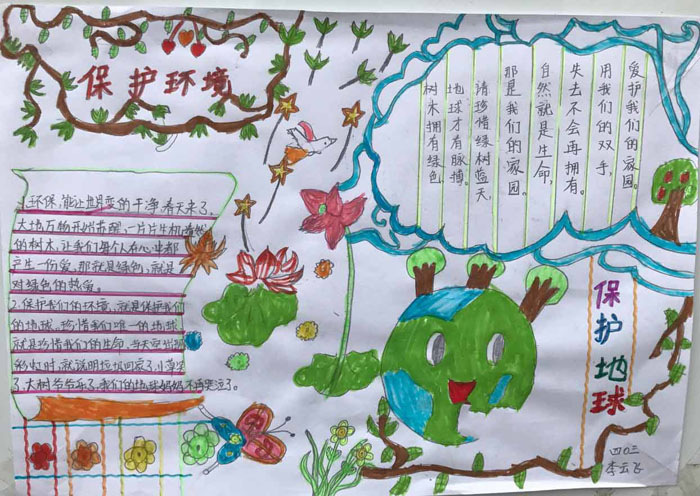 保护环境
1.环保,能让世界变的干净,春天来了,
大地万物开始苏醒,一片片生机盎然
的树木,让我们每个人在心里都
产生一份爱,那就是绿色,就是
对绿色的热爱。
2.保护我们的环境,就是保护我们
的地球,珍惜我们唯一的地球,
就是珍惜我们的生命,当天空出现
彩虹时,就说明垃圾回家了,小草笑
了,大树爷爷乐了,我们的地球妈妈不再哭泣了。
爱护我们的家园。
用我们的双手,
失去不会再拥有。
自然就是生命,
那是我们的家园。
请珍惜绿树蓝天,
地球才有脉搏。
树木拥有绿色
保护地球
四〇三
李云飞